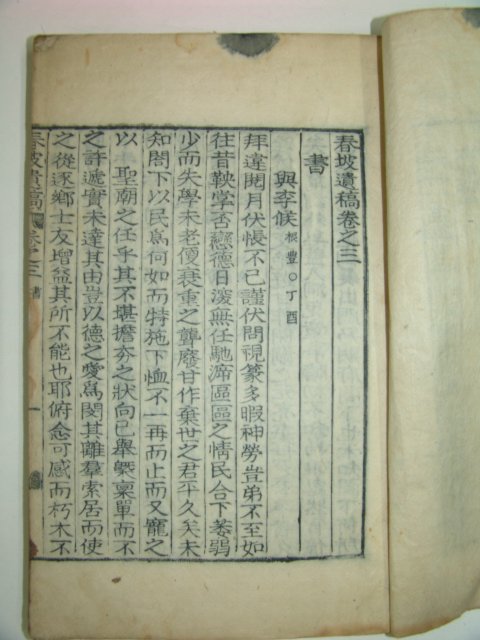 春坡遺稿卷之三
書
與李候 根豊○丁酉
拜違閱月伏悵不已謹伏問視篆多暇神勞豈弟不至如
往昔鞅掌否戀德日深無任馳溯區區之情民合下萎弱
少而失學末老傻衰重之聾廢甘作棄世之君平久矣未
知閤下以民爲何如而特施下恤不一再而止而又寵之
以 聖廟之任乎其不堪擔夯之狀向已擧槩稟單而不
之許遞實未達其由豈以德之愛爲閔其離羣索居而使
之從逐鄕士友增益其所不能也耶俯念可感而朽木不
春坡遺稿 卷之三 書 一